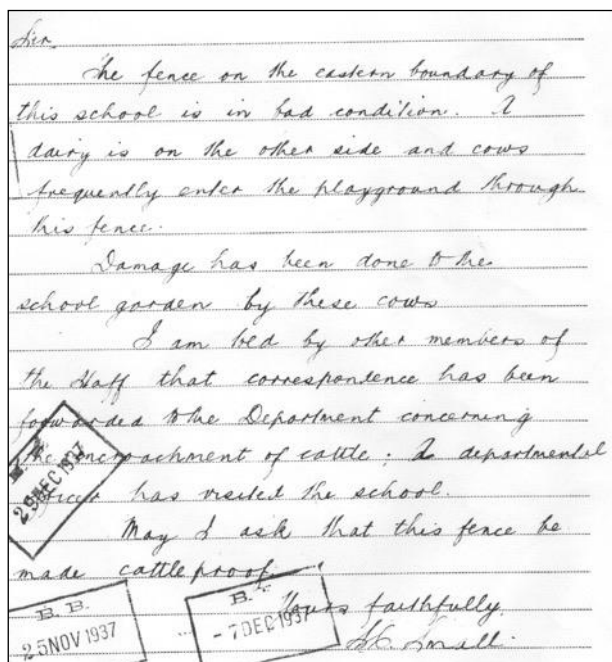 Sir,
The fence on the eastern boundary of
this school is in bad condition. A
dairy is on the other side and cows
frequently enter the playground through
this fence.
Damage has been done to the
school garden by these cows
I am told by other members of
the Staff that correspondence has been
forwarded to the Department concerning
the encroachment of cattle; A departmental
officer has visited the school.
May I ask that this fence be
made cattleproof.
Yours faithfully,
Small.
29 DEC 1937
B. B.
25 NOV 1937
B.
- 7 DEC 1937